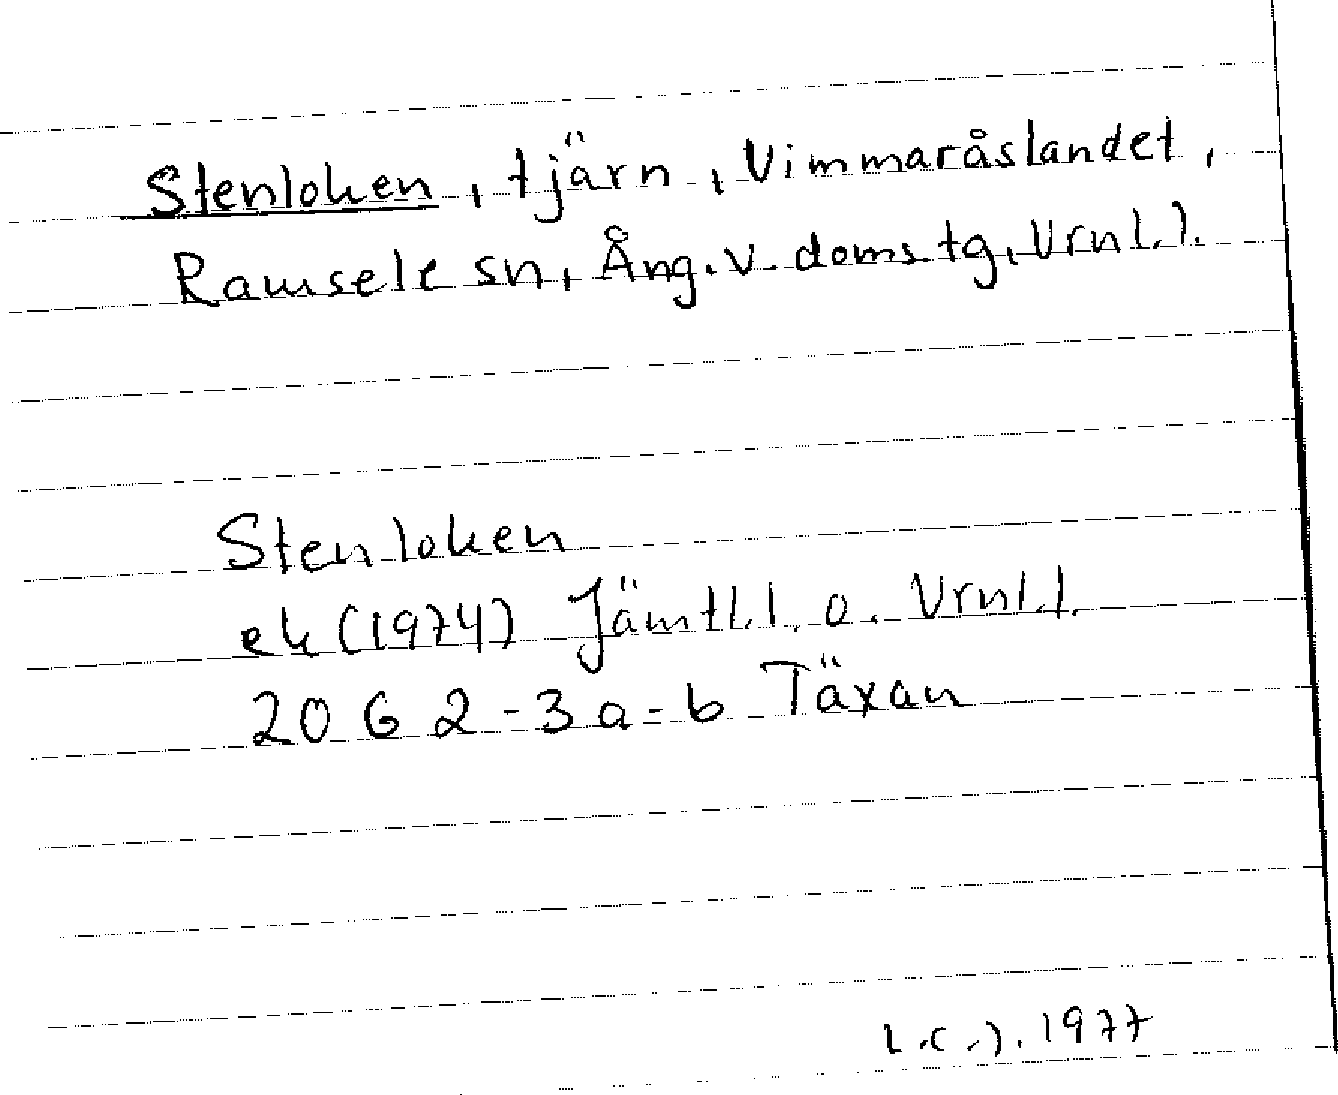 Stenloken, tjärn, Vimmaråslandet,
Ramsele sn, Ång.v. domstg, Vrnl.l.
Stenloken
ek (1974) Jämtl.l. o. Vrnl.l.
20 G 2-3 a-b Täxan
L.C.J. 1977